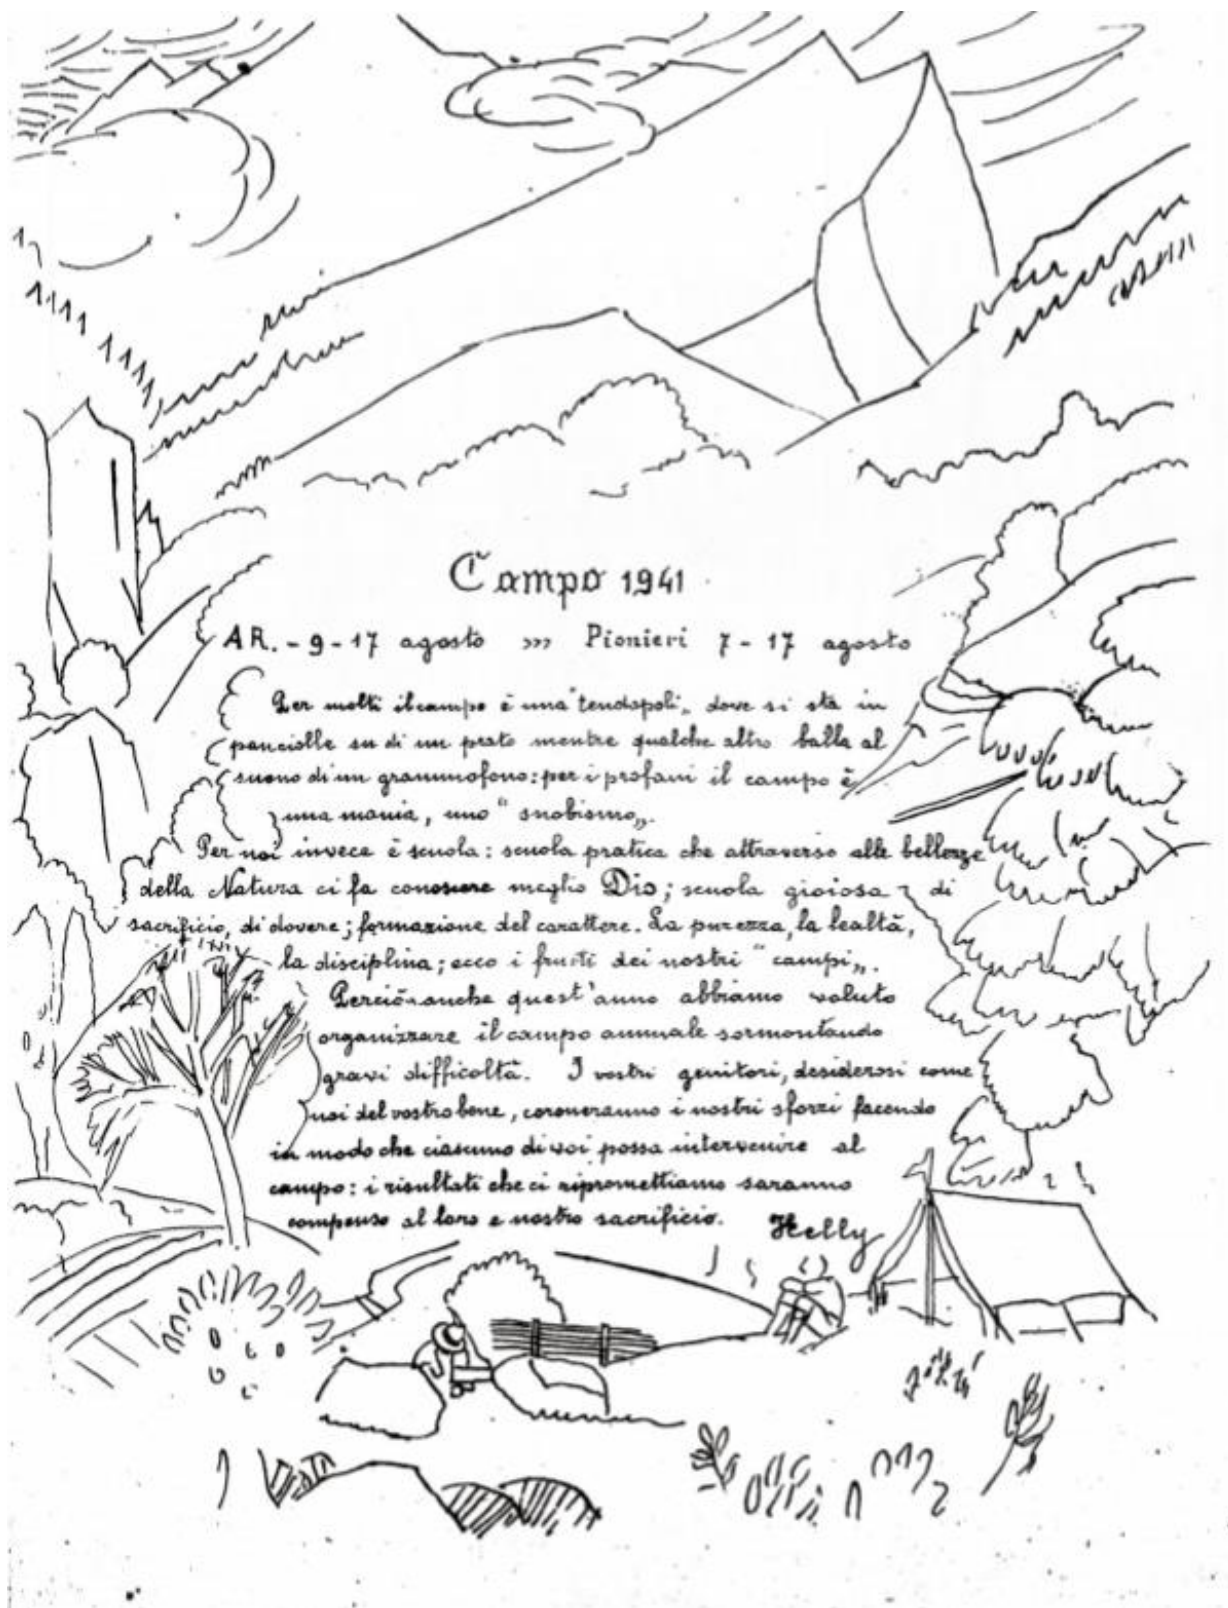 Campo 1941
AR. - 9 - 17 agosto »» Pionieri 7 - 17 agosto
Per molti il campo è una "tendopoli„ dove si sta in
panciolle su di un prato mentre qualche altro balla al
suono di un grammofono: per i profani il campo è
una mania, uno "snobismo„.
Per noi invece è scuola: scuola pratica che attraverso alle bellezze
della Natura ci fa conoscere meglio Dio; scuola gioiosa di
sacrificio, di dovere; formazione del carattere. La purezza, la lealtà,
la disciplina; ecco i frutti dei nostri "campi„.
Perciò anche quest'anno abbiamo voluto
organizzare il campo annuale sormontando
gravi difficoltà. I vostri genitori, desiderosi come
noi del vostro bene, coroneranno i nostri sforzi facendo
in modo che ciascuno di voi possa intervenire al
campo: i risultati che ci ripromettiamo saranno
compenso al loro e nostro sacrificio. Kelly